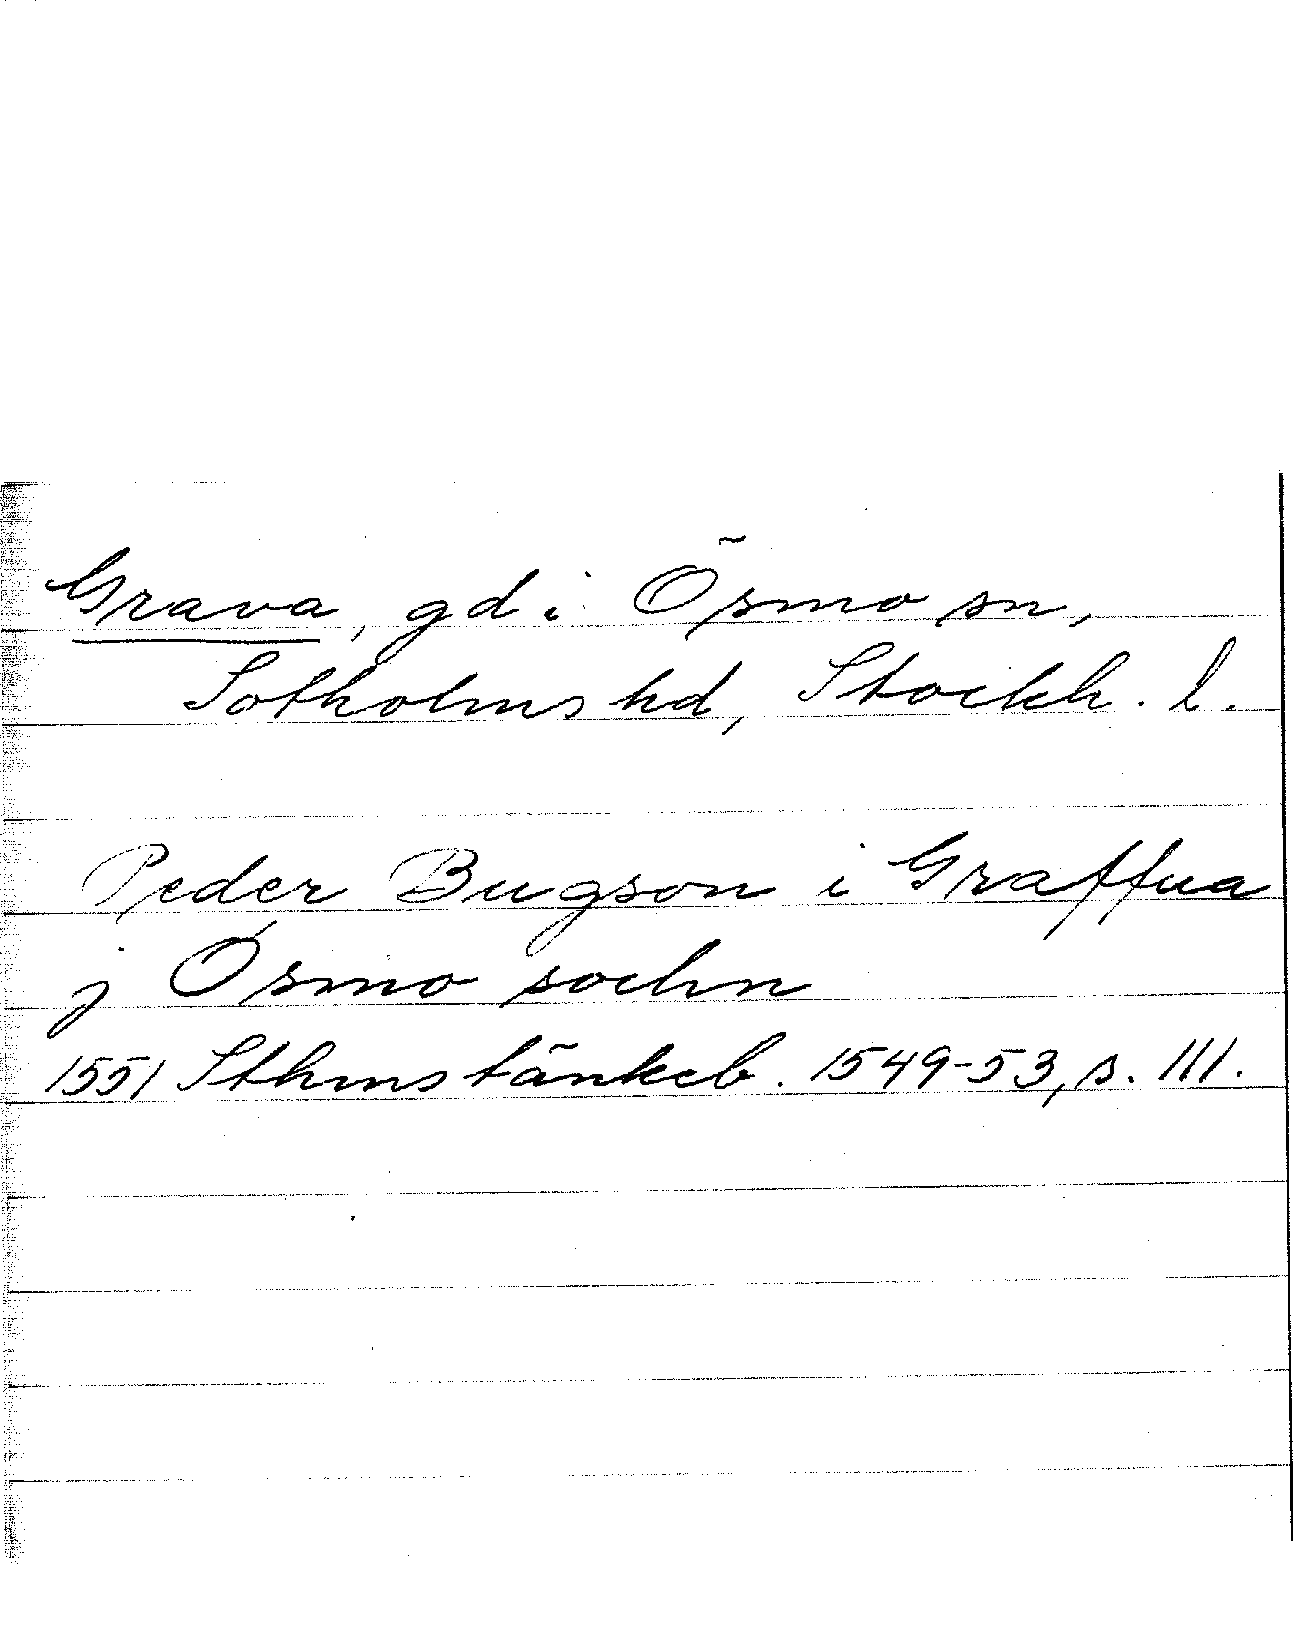 Grava, gd i Ösmo sn,
Sotholms hd, Stockh. l.
Peder Bugson i Graffua
j Ósmo sochn
1551 Sthms tänkeb. 1549-53, s. 111.